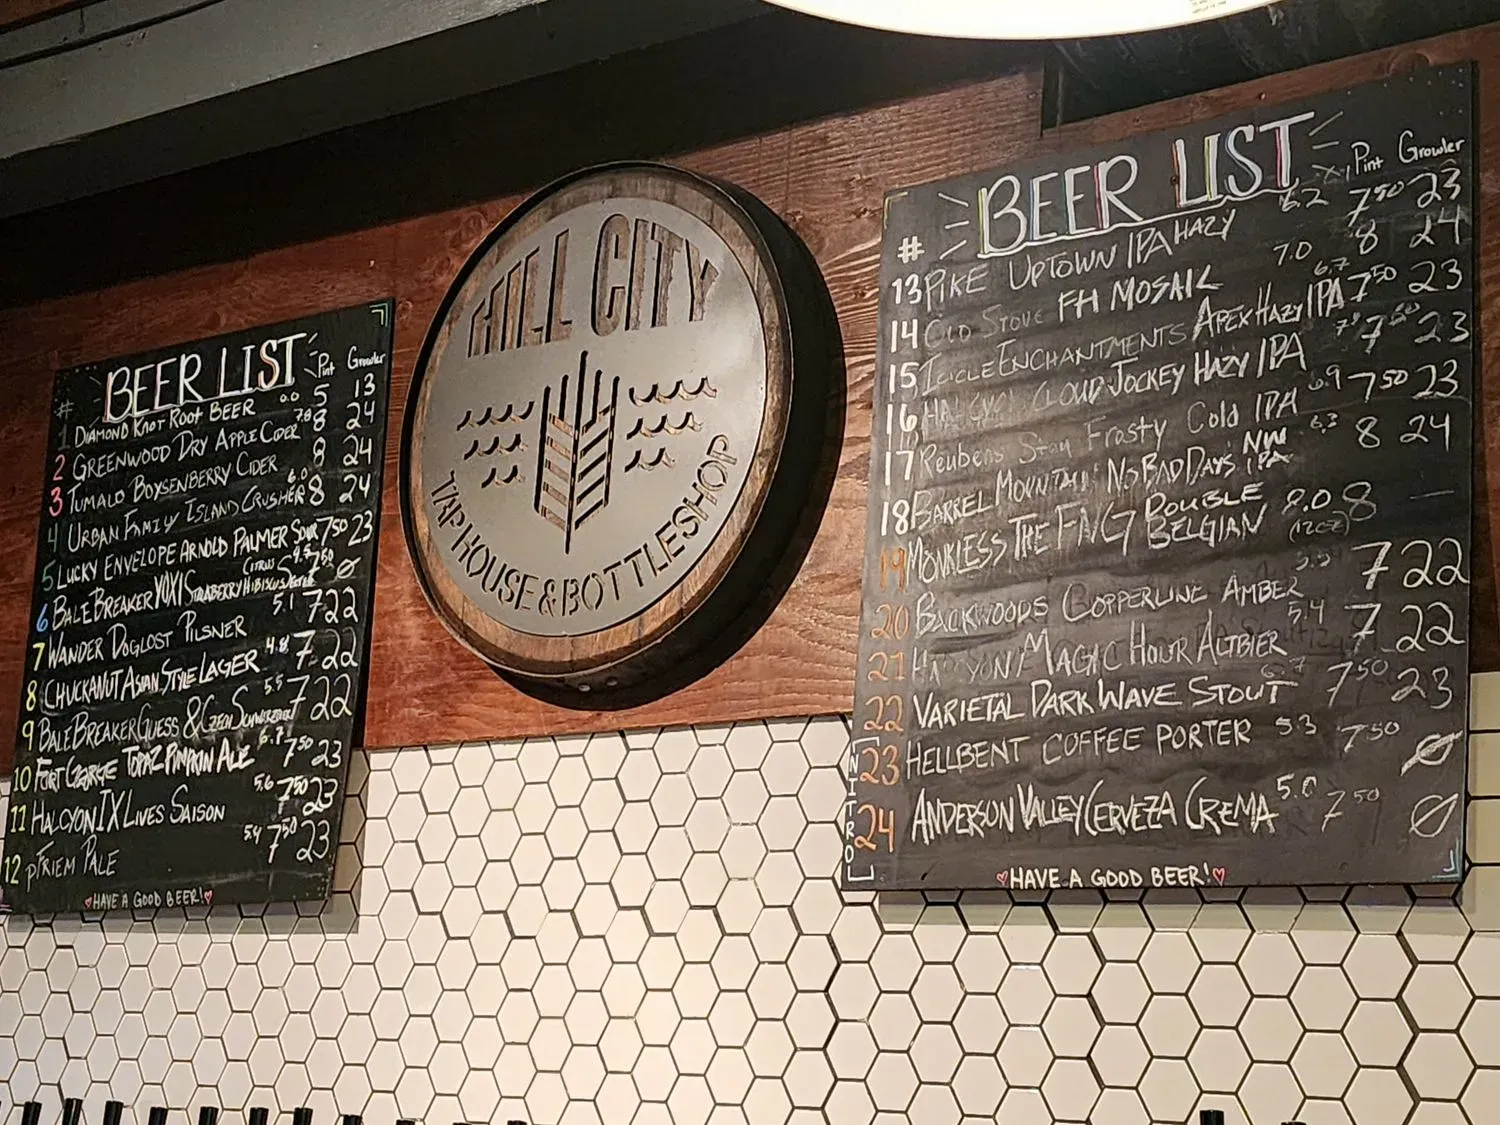 BEER LIST
# Pint Growler
1 DIAMOND KNOT ROOT BEER 0.0 5 13
2 GREENWOOD DRY APPLE CIDER 8 24
3 TUMALO BOYSENBERRY CIDER 8 24
4 URBAN FAMILY ISLAND CRUSHER 6.0 8 24
5 LUCKY ENVELOPE ARNOLD PALMER SOUR 7 50 23
6 BALEBREAKER YUXI CITRUS STRAWBERRY HIBISCUS Ø
7 WANDER DOGLOST PILSNER 5.1 7 22
8 CHUCKANUT ASIAN STYLE LAGER 4.8 7 22
9 BALEBREAKER GUESS & CZECH 5.5 7 22
10 FORT GEORGE TOPAZ PUMPKIN ALE 6.7 7 50 23
11 HALCYON IX LIVES SAISON 5.6 7 50 23
12 PFRIEM PALE 5.4 7 50 23
HAVE A GOOD BEER!
HILL CITY
TAP HOUSE & BOTTLESHOP
BEER LIST
# Pint Growler
13 PIKE UPTOWN IPA HAZY 6.2 7 50 23
14 OLD STOVE FH MOSAIC 7.0 8 24
15 ICICLE ENCHANTMENTS APEX HAZY IPA 6.7 7 50 23
16 HALCYON CLOUD JOCKEY HAZY IPA 7 50 23
17 Reubens Stay Frosty Cold IPA 6.9 7 50 23
18 BARREL MOUNTAIN NO BAD DAYS NW IPA 6.3 8 24
19 MONKLESS THE FNG DOUBLE BELGIAN 8.0 (12oz) 8 —
20 BACKWOODS COPPERLINE AMBER 7 22
21 HALCYON MAGIC HOUR ALTBIER 5.4 7 22
22 VARIETAL DARK WAVE STOUT 6.7 7 50 23
NITRO
23 HELLBENT COFFEE PORTER 5.3 7 50 Ø
24 ANDERSON VALLEY CERVEZA CREMA 5.0 7 50 Ø
HAVE A GOOD BEER!